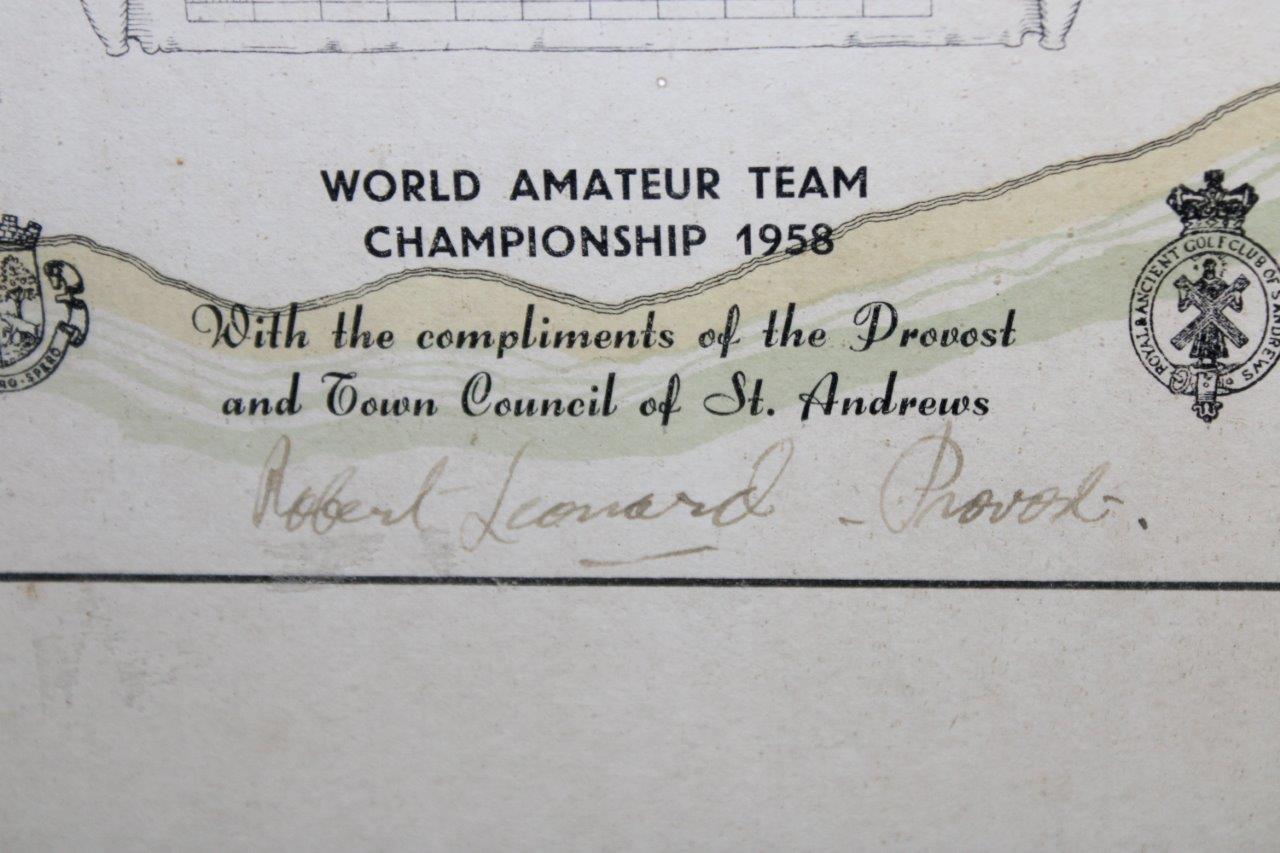 WORLD AMATEUR TEAM
CHAMPIONSHIP 1958
With the compliments of the Provost
and Town Council of St. Andrews
Robert Leonard - Provost.
ROYAL & ANCIENT GOLF CLUB OF ST ANDREWS
RO-SPERO